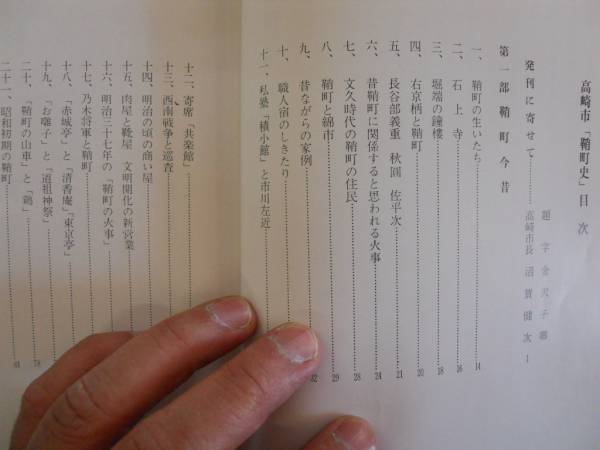 高崎市「鞘町史」目次
題字 金沢 子卿
発刊に寄せて………高崎市長 沼賀健次 1
第一部 鞘町今昔
一、鞘町の生いたち……14
二、石上寺……16
三、堀端の鐘楼……18
四、右京柄と鞘町……20
五、長谷部義重 秋圓 佐平次……21
六、昔鞘町に関係すると思われる火事……24
七、文久時代の鞘町の住民……28
八、鞘町と綿市……29
九、昔ながらの家例……32
十、職人宿のしきたり……
十一、私塾「積小館」と市川左近……
十二、寄席「共楽館」……
十三、西南戦争と巡査……
十四、明治の頃の商い屋……
十五、肉屋と靴屋 文明開化の新営業
十六、明治三十七年の「鞘町の火事」……
十七、乃木将軍と鞘町……
十八、「赤城亭」と「清香庵」「東京亭」……
十九、「お囃子」と「道祖神祭」……
二十、「鞘町の山車」と「鶏」……
二十一、昭和初期の鞘町……